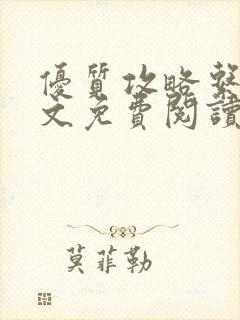 優質攻略系
文免費閱讀
莫菲勒